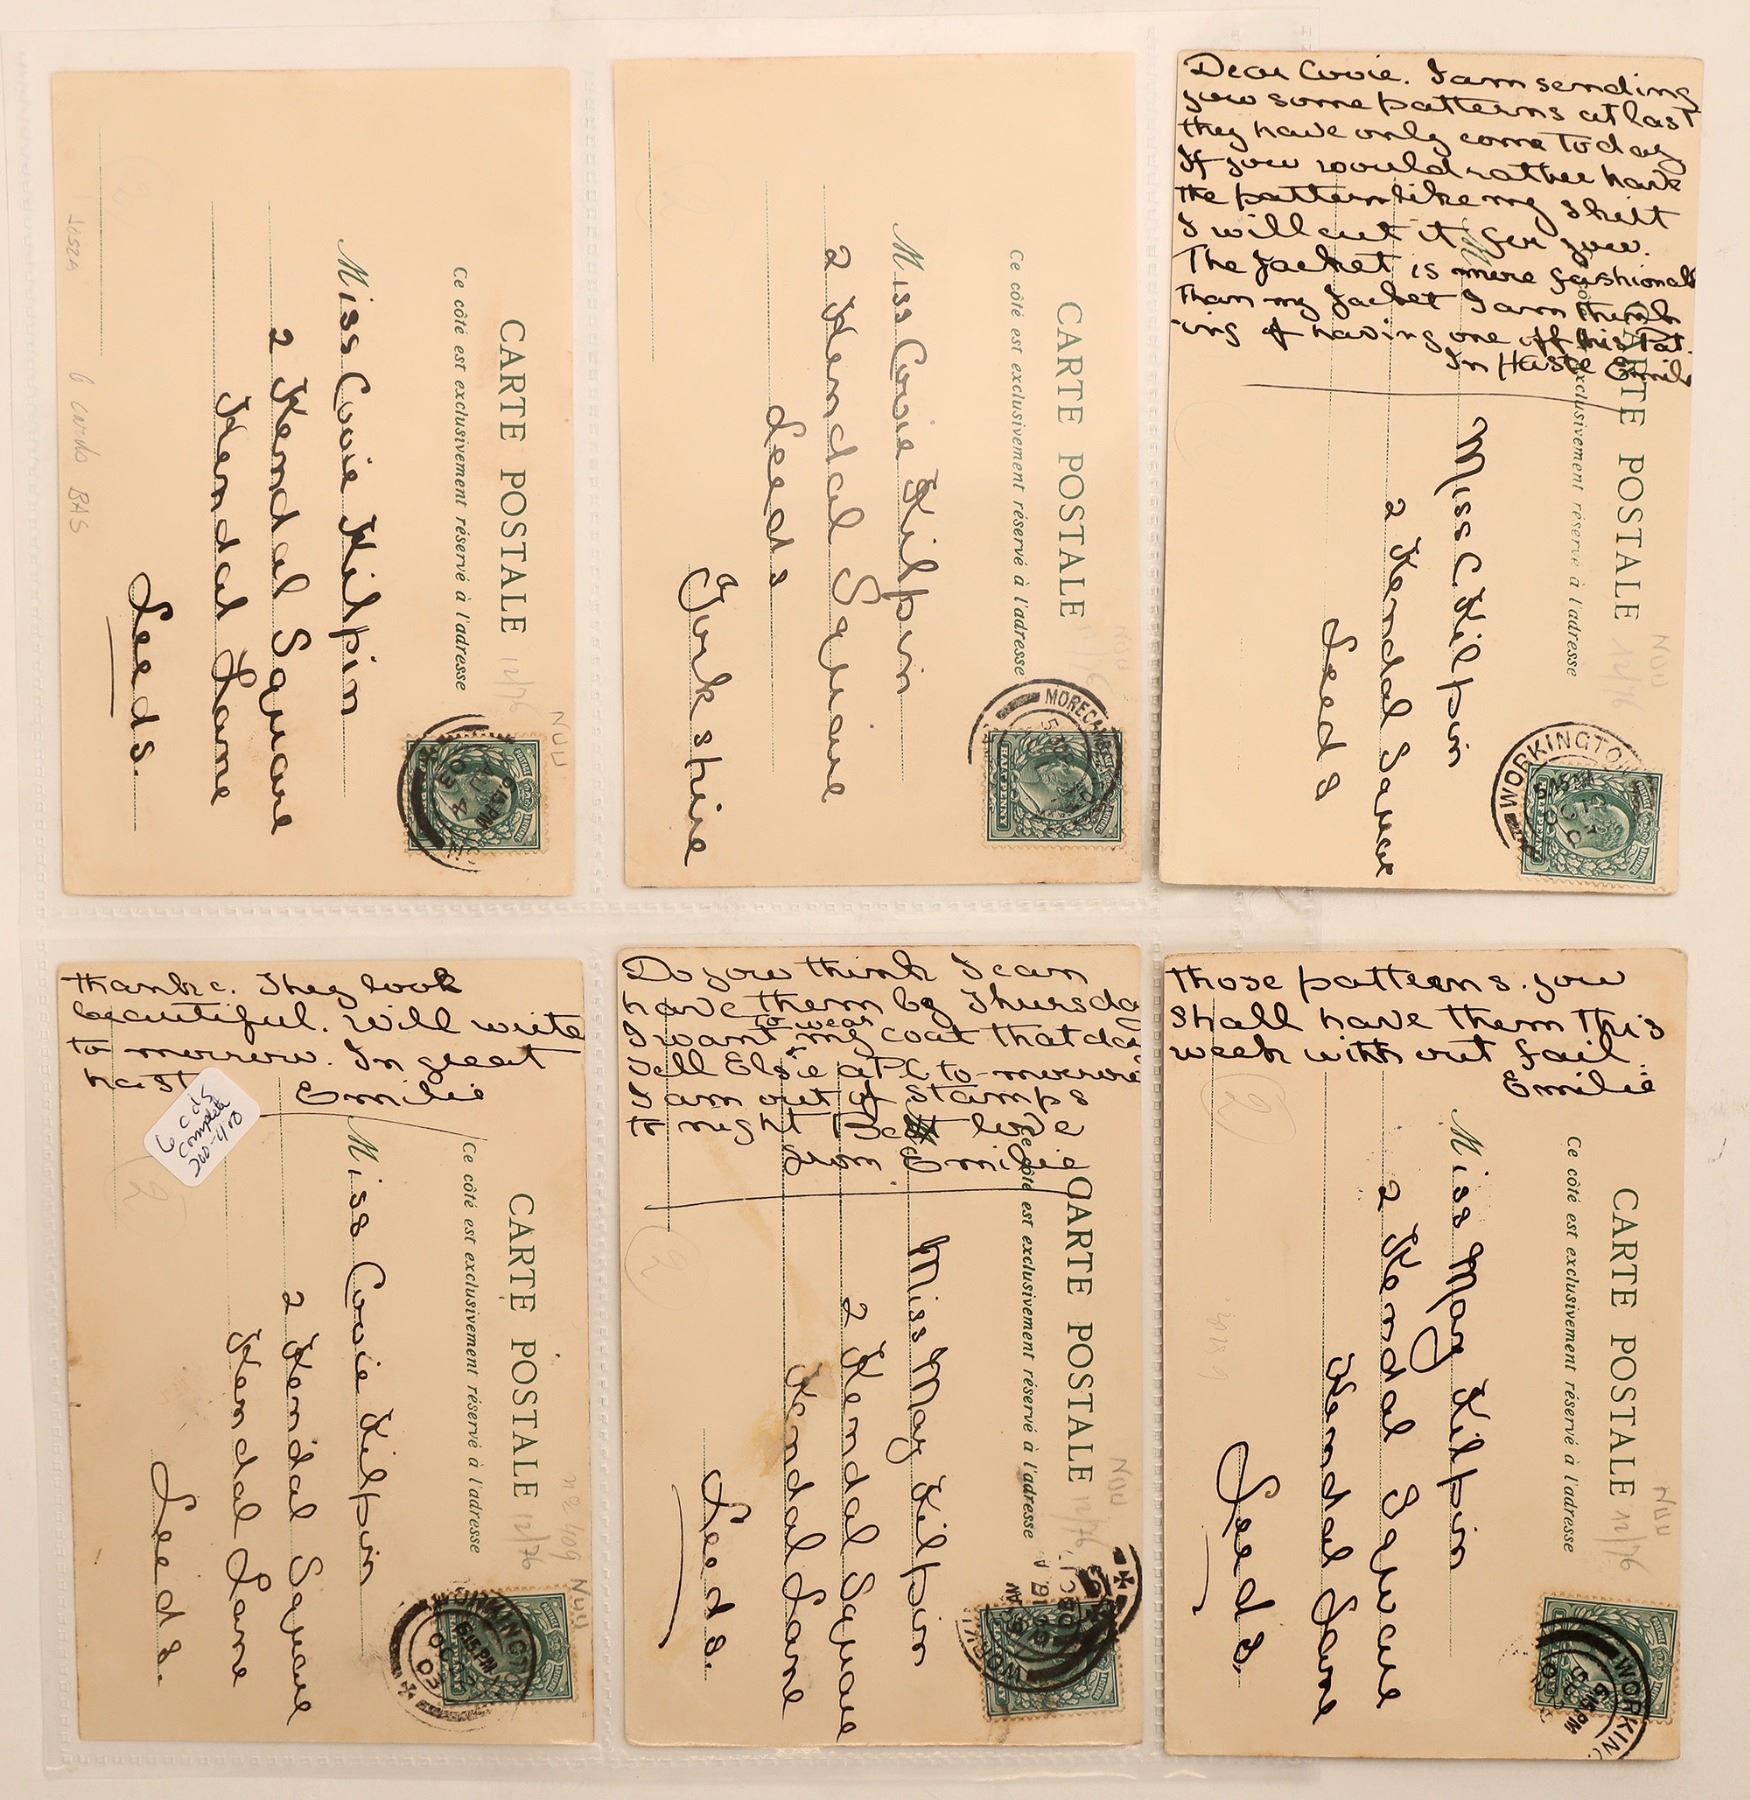 CARTE POSTALE
Ce côté est exclusivement réservé à l'adresse
Miss Covie Kilpin
2 Kendal Square
Kendal Lane
Leeds.
12/76
NUU
6 cards BAS
CARTE POSTALE
Ce côté est exclusivement réservé à l'adresse
Miss Covie Kilpin
2 Kendal Square
Leeds
Yorkshire
MORECA
HALFPENNY
Dear Covie. I am sending
you some patterns at last
they have only come Today
If you would rather have
the pattern like my skirt
I will cut it for you.
The Jacket is more fashionab
than my Jacket I am think
ing of having one off this Pat.
In Haste Emili
CARTE POSTALE
Ce côté est exclusivement réservé à l'adresse
Miss C. Kilpin
2 Kendal Square
Leeds
12/76
NUU
WORKINGTO
thanks. They look
beautiful. Will write
to morrow. In great
hast
Emilie
6 cds
complete
200-400
2
CARTE POSTALE
Ce côté est exclusivement réservé à l'adresse
Miss Covie Kilpin
2 Kendal Square
Kendal Lane
Leeds.
12/76
NUU
6.15PM
OC
03
Do you think I can
have them by Thursda
I want to wear my coat that day
Tell Elsie a P.C to-morrow
I am out of Stamps
to night Best love
from Emilie
2
CARTE POSTALE
Ce côté est exclusivement réservé à l'adresse
Miss May Kilpin
2 Kendal Square
Kendal Lane
Leeds.
12/76
NUU
those patterns. you
shall have them this
week with out fail.
Emilie
2
CARTE POSTALE
Ce côté est exclusivement réservé à l'adresse
Miss May Kilpin
2 Kendal Square
Kendal Lane
Leeds.
12/76
NUU
WORKING